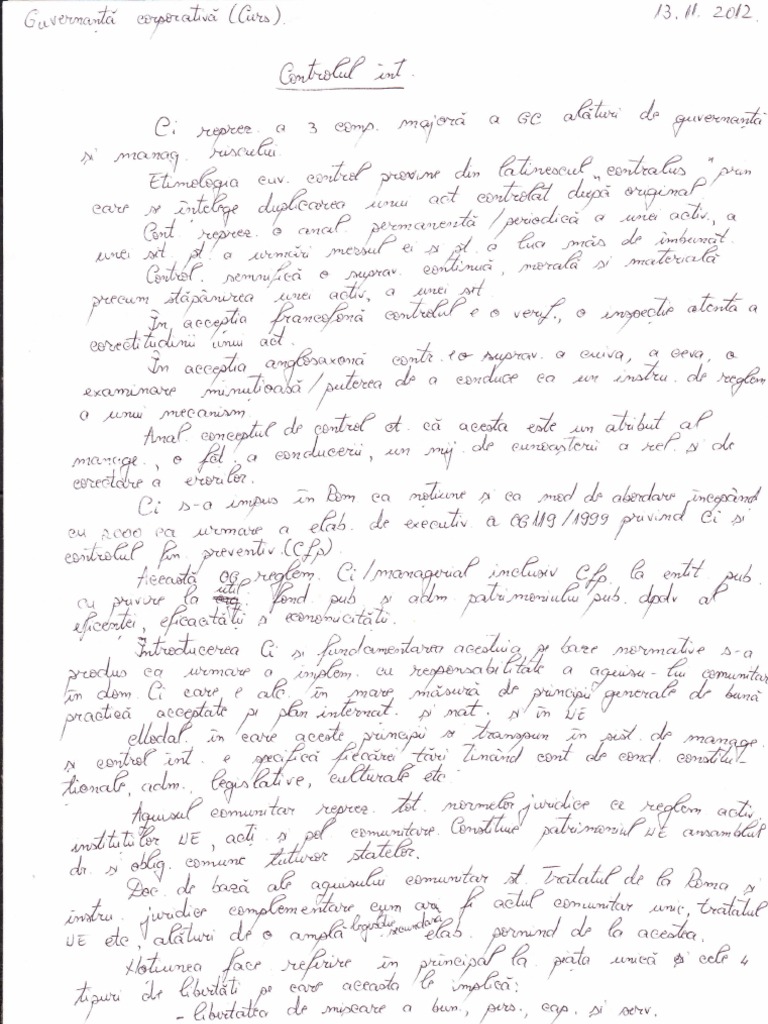 Guvernanță corporativă (Curs). 13.11.2012.
Controlul int.
Ci reprez. a 3 comp. majoră a GC alături de guvernanță
și manag. riscului.
Etimologia cuv. control provine din latinescul „contralus" prin
care se înțelege duplicarea unui act controlat după original.
Cont. reprez. o anal. permanentă/periodică a unei activ., a
unei sit. pt. a urmări mersul ei și pt. a lua măs. de îmbunăt.
Control. semnifică o suprav. continuă, morală și materială
precum stăpânirea unei activ., a unei sit.
În accepția francofonă controlul e o verif., o inspecție atentă a
corectitudinii unui act.
În accepția anglosaxonă contr. e o suprav. a cuiva, a ceva, o
examinare minuțioasă/puterea de a conduce ca un instru. de reglem.
a unui mecanism.
Anal. conceptul de control ct. că acesta este un atribut al
manage., o fct. a conducerii, un mij. de cunoașterii a rel. și de
corectare a erorilor.
Ci s-a impus în Rom ca noțiune și ca mod de abordare începând
cu 2000 ca urmare a elab. de executiv. a OG119/1999 privind Ci și
controlul fin. preventiv. (Cfp)
Această OG reglem. Ci/managerial inclusiv Cfp. la entit. pub.
cu privire la util. fond. pub. și adm. patrimoniului pub. dpdv al
eficenței, eficacității și economicității.
Introducerea Ci și fundamentarea acestuia pe baze normative s-a
produs ca urmare a implem. cu responsabilitate a aquisu-lui comunitar
în dom. Ci care e alc. în mare măsură de principii generale de bună
practică acceptate pe plan internat. și nat. și în UE
Modal. în care aceste principii se transpun în sist. de manage.
și control int. e specifică fiecărei țări Ținând cont de cond. constitu-
ționale, adm., legislative, culturale etc.
Aquisul comunitar reprez. tot. normelor juridice ce reglem. activ.
instituțiilor UE, acți. și pol. comunitare. Constituie patrimoniul UE ansamblul
dr. și oblig. comune tuturor statelor.
Doc. de bază ale aquisului comunitar st. Tratatul de la Roma și
instru. juridice complementare cum ar fi actul comunitar unic, tratatul
UE etc, alături de o amplă legislație secundară elab. pornind de la acestea.
Noțiunea face referire în principal la piața unică și cele 4
tipuri de libertăți pe care aceasta le implică:
- libertatea de mișcare a bun., pers., cap. și serv.